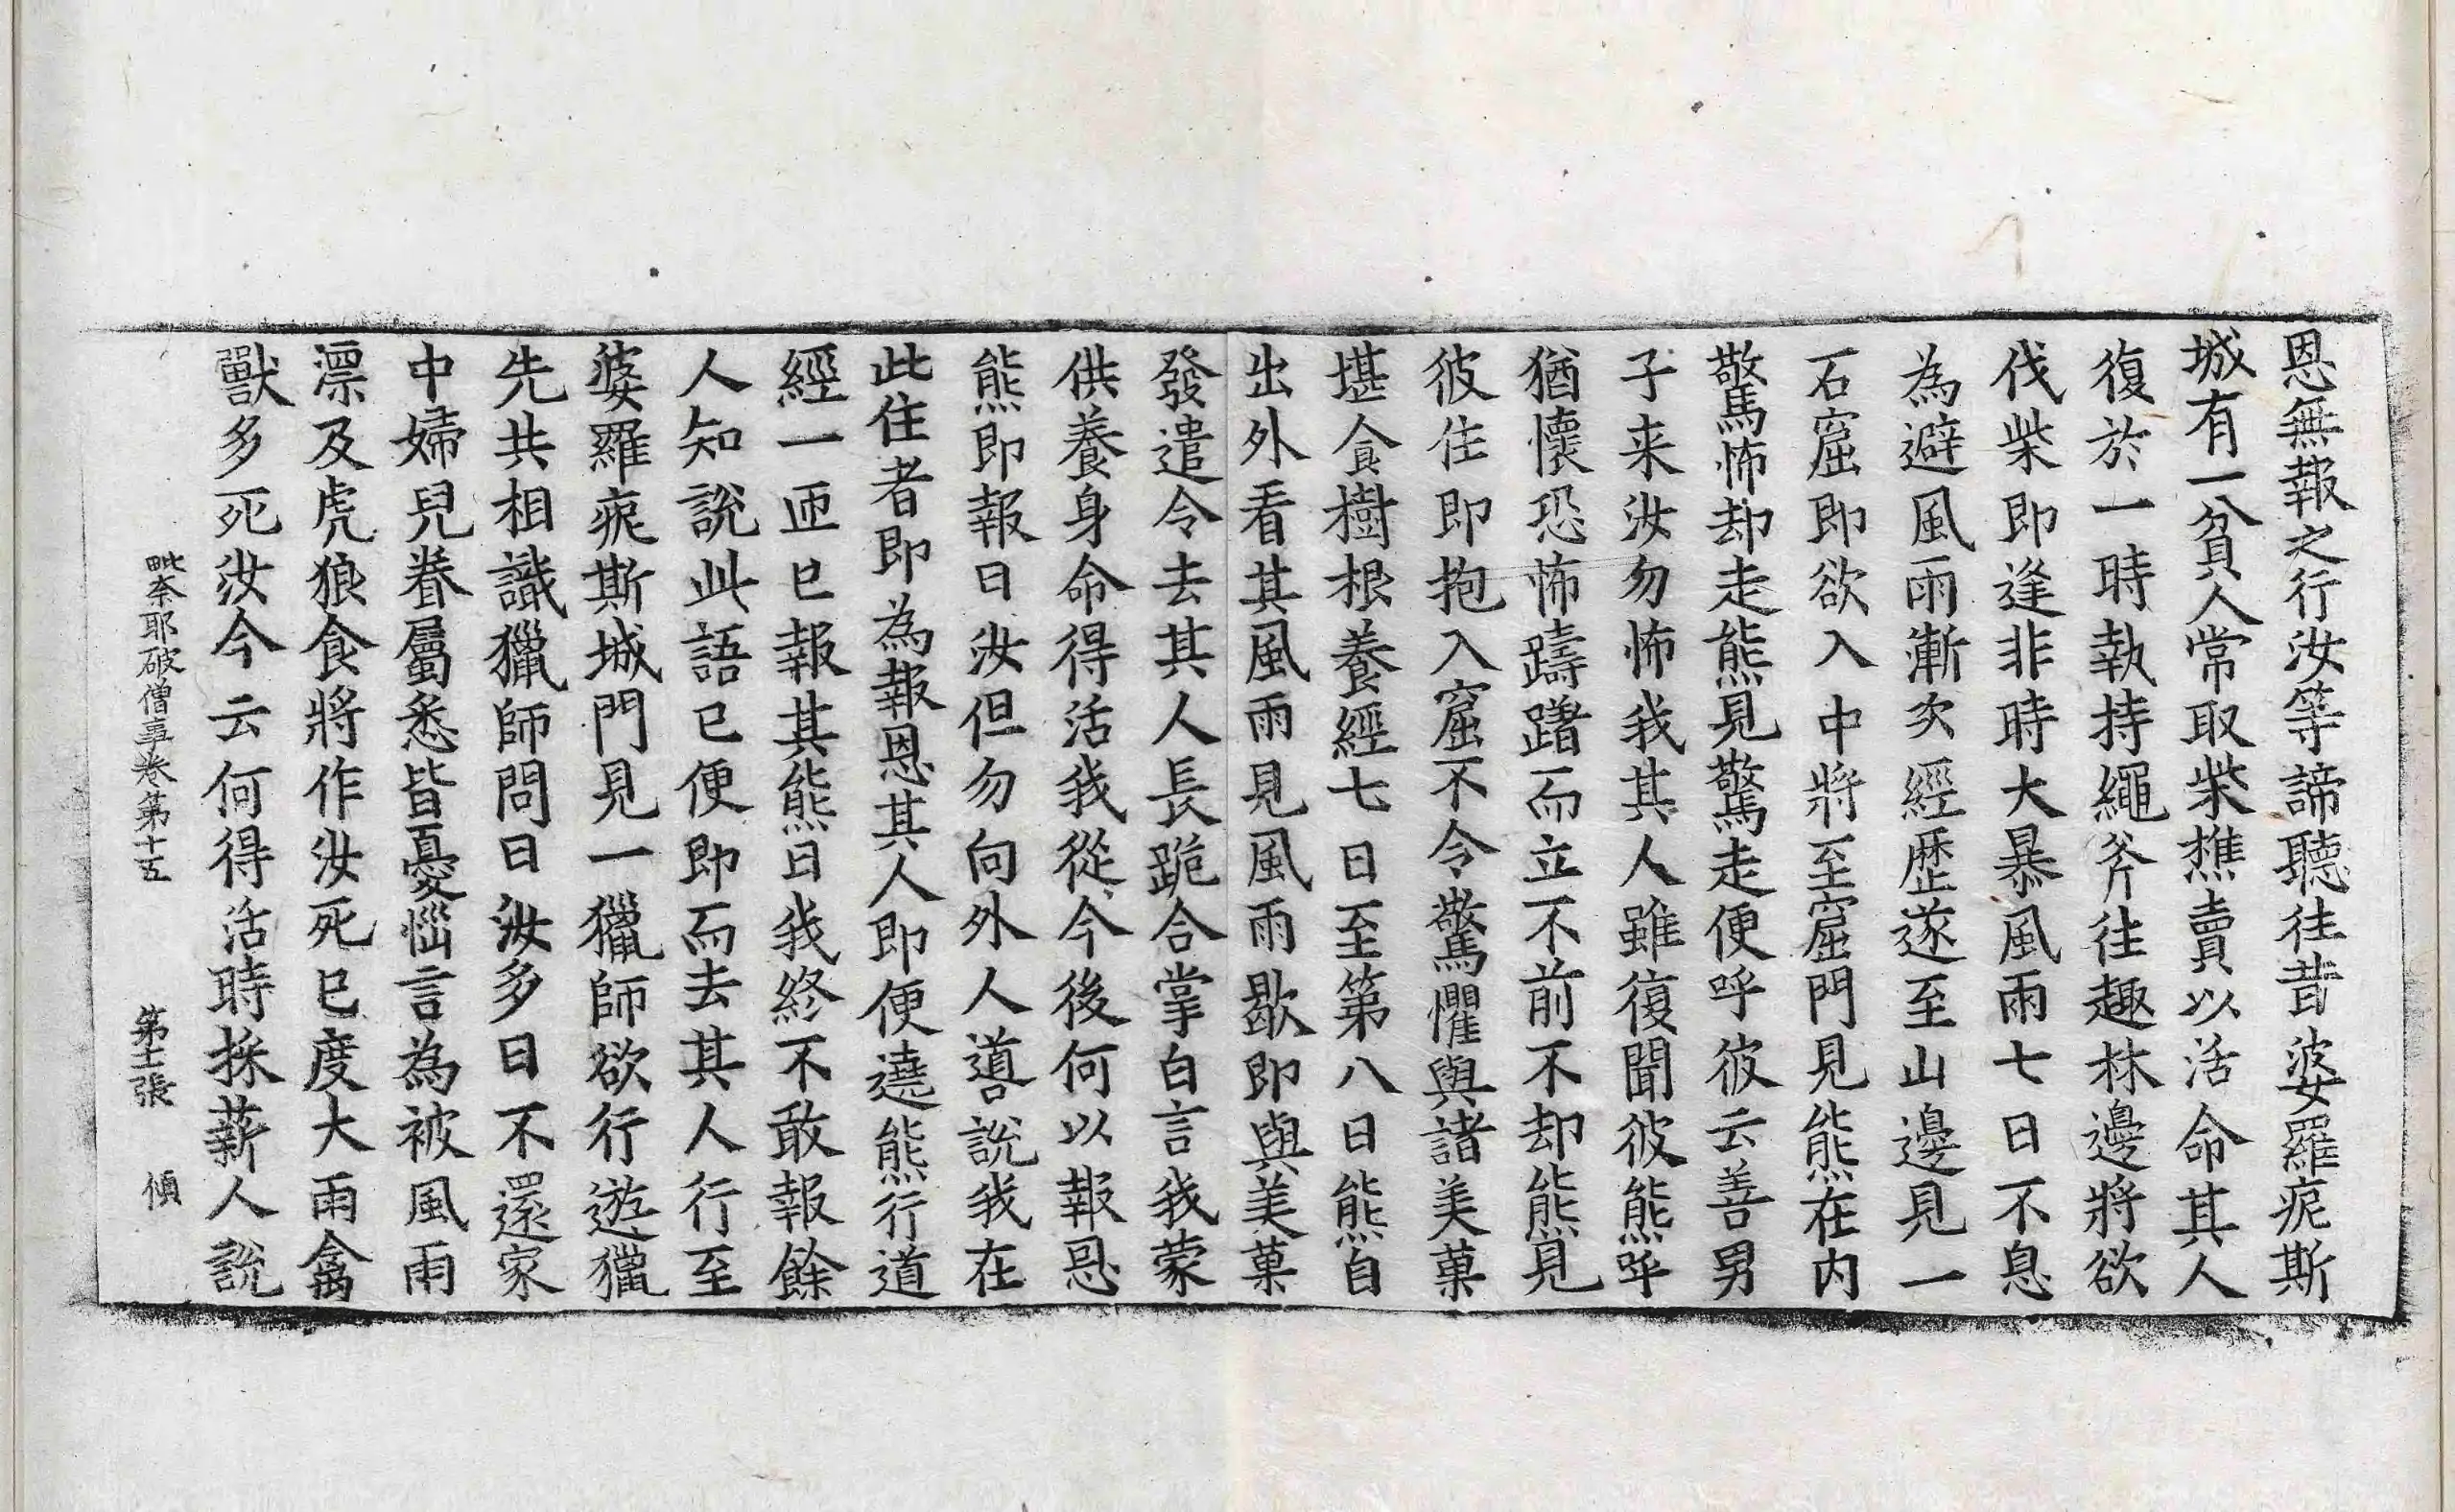 恩無報之行汝等諦聽往昔婆羅痆斯
城有一貧人常取柴樵賣以活命其人
復於一時執持繩斧往趣林邊將欲
伐柴即逢非時大暴風雨七日不息
為避風雨漸次經歷遂至山邊見一
石窟即欲入中將至窟門見熊在內
驚怖却走熊見驚走便呼彼云善男
子来汝勿怖我其人雖復聞彼熊呼
猶懷恐怖躊躇而立不前不却熊見
彼住即抱入窟不令驚懼與諸美菓
堪食樹根養經七日至第八日熊自
出外看其風雨見風雨歇即與美菓
發遣令去其人長跪合掌白言我蒙
供養身命得活我從今後何以報恩
熊即報曰汝但勿向外人導說我在
此住者即為報恩其人即便遶熊行道
經一匝已報其熊曰我終不敢報餘
人知說此語已便即而去其人行至
婆羅痆斯城門見一獵師欲行遊獵
先共相識獵師問曰汝多日不還家
中婦兒眷屬悉皆憂惱言為被風雨
漂及虎狼食將作汝死已度大雨禽
獸多死汝今云何得活時採薪人說
毗奈耶破僧事卷第十五 第十二張 傾